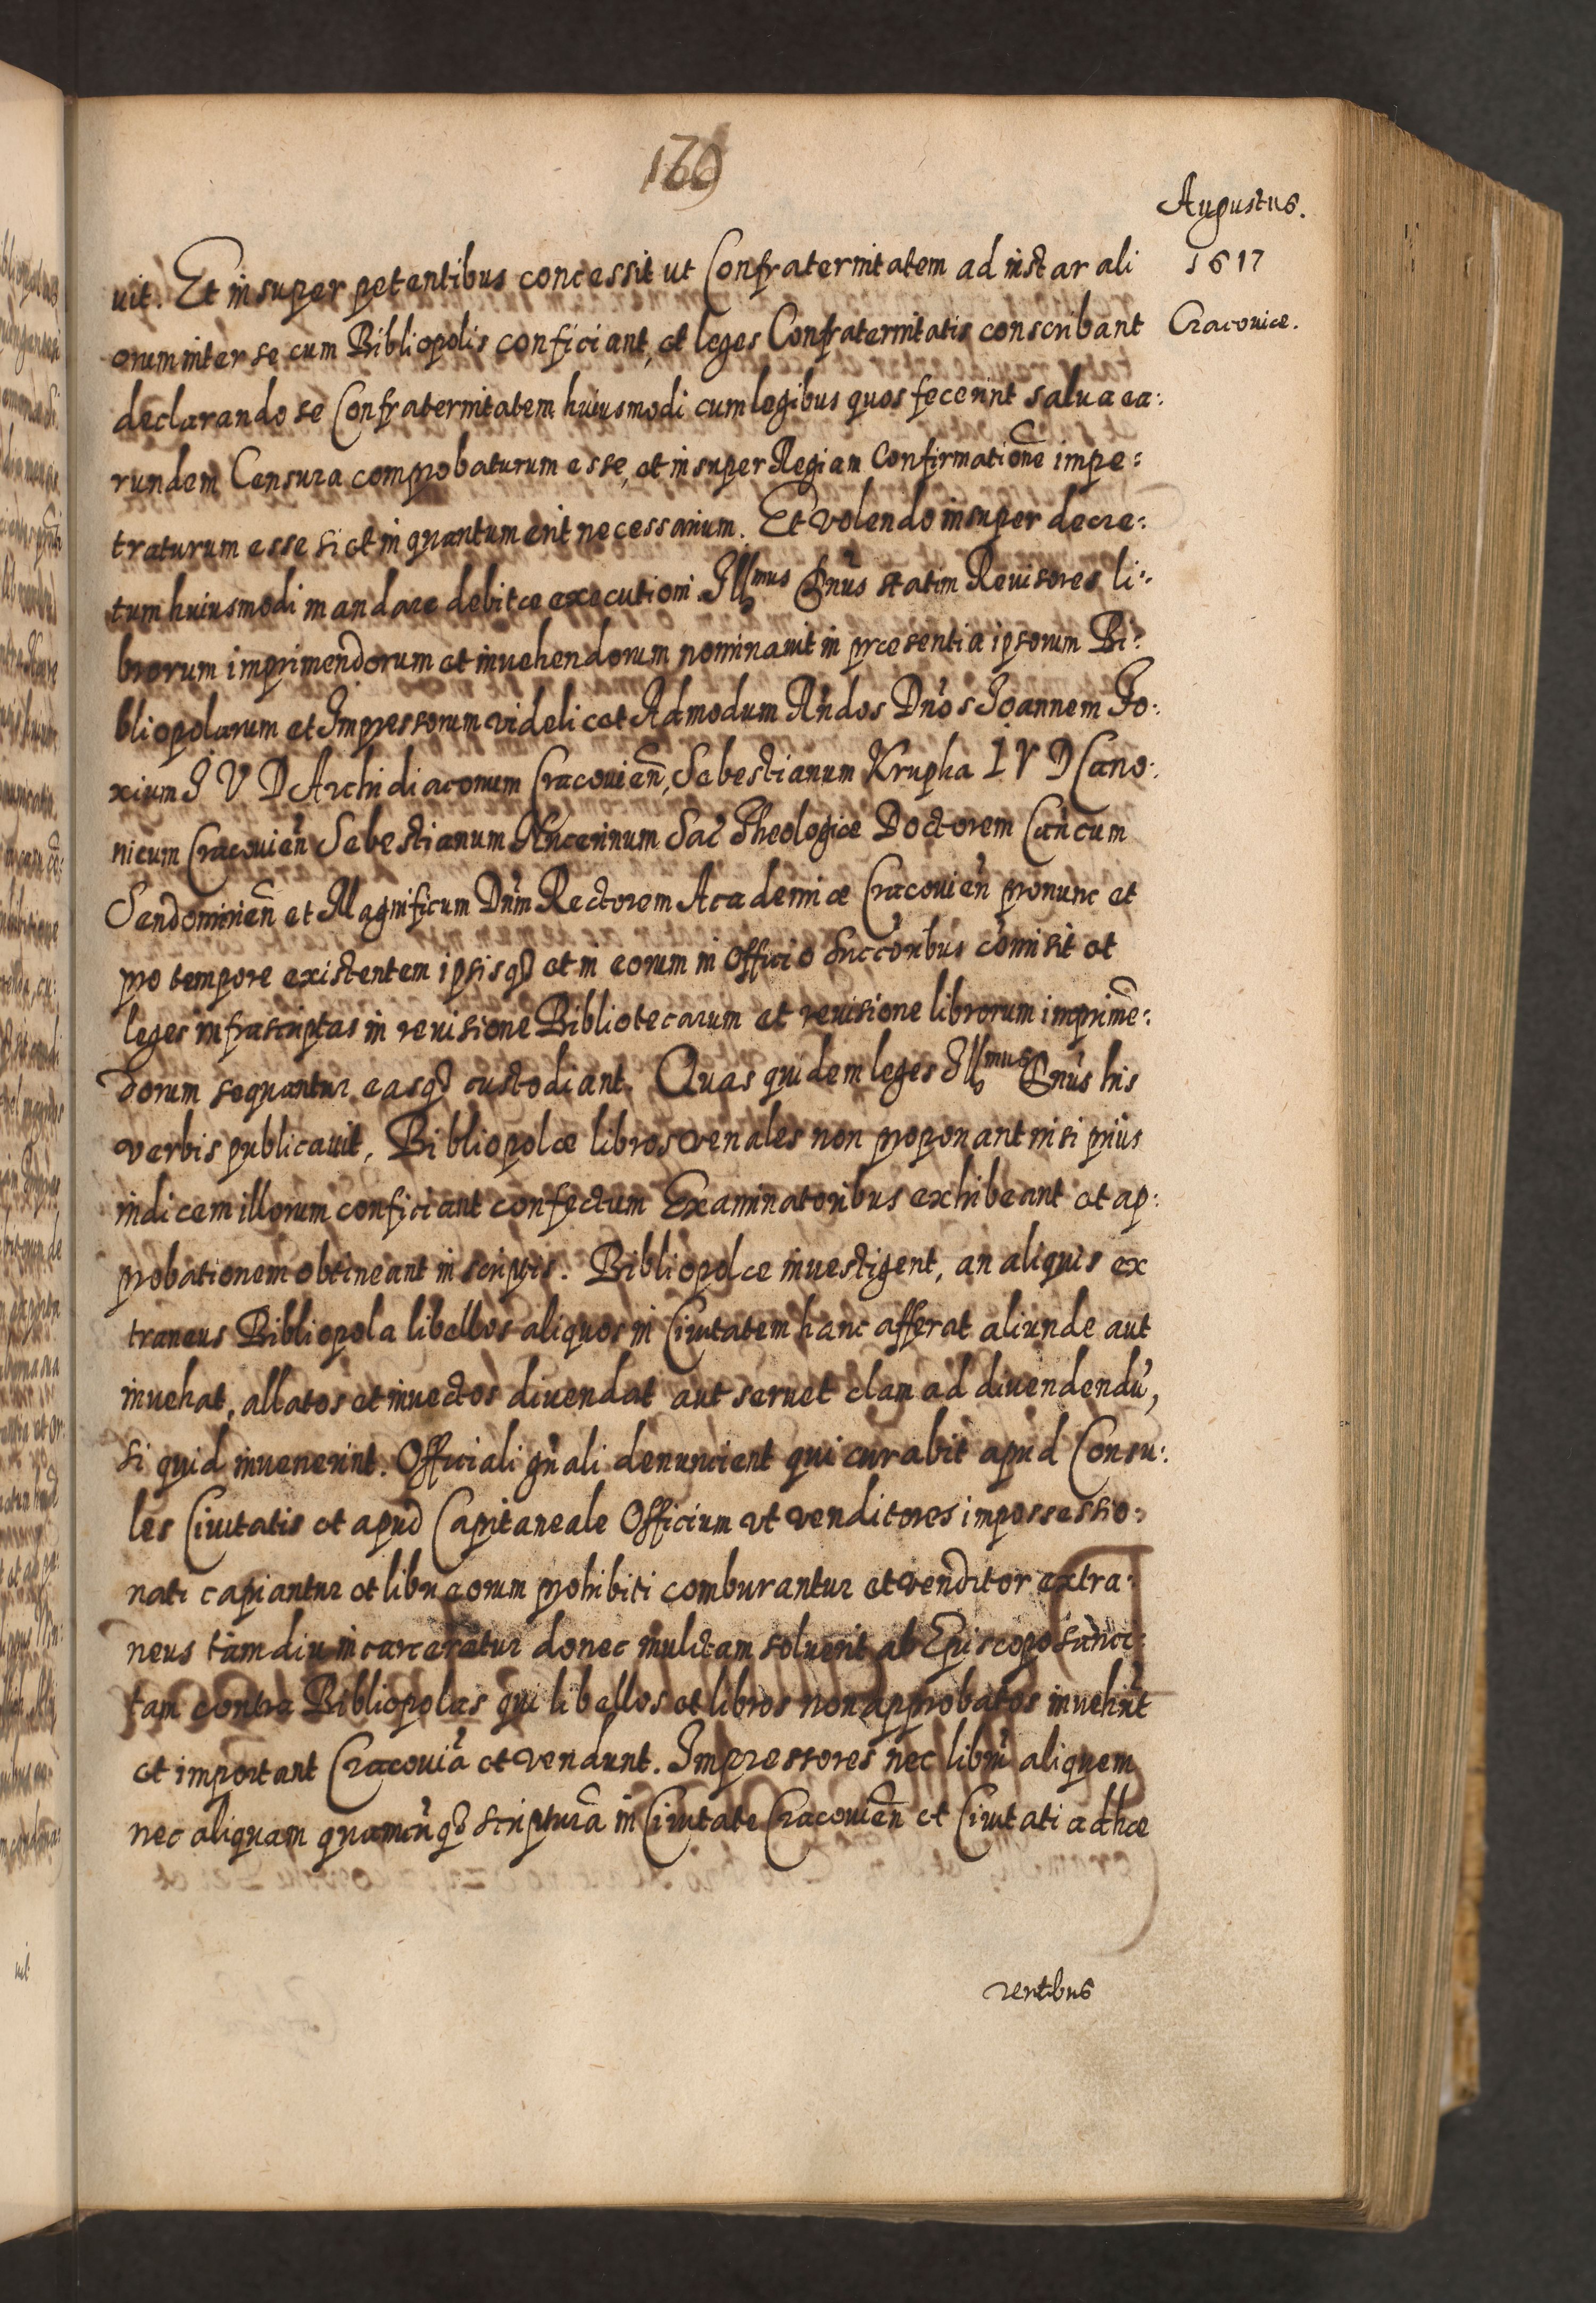 169
Augustus.
1617
Cracoviæ.
uit. Et insuper petentibus concessit ut Confraternitatem ad instar ali
orum inter se cum Bibliopolis conficiant, et leges Confraternitatis conscribant
declarando se Confraternitatem huiusmodi cum legibus quos fecerint salua ea:
rundem Censura comprobaturum esse, et insuper Regiam Confirmationẽ impe:
traturum esse si et in quantum erit necessarium. Et volendo insuper decre:
tum huiusmodi mandare debitæ executioni Illmus Dnus statim Reuisores li:
brorum imprimendorum et inuehendorum nominauit in præsentia ipsorum Bi:
bliopolarum et Impressorum videlicet Admodum Rñdos Dños Joannem Fo:
xium J V D Archidiaconum Cracovieñ, Sebestianum Krupka I V D Cano:
nicum Cracovieñ Sebestianum Nucerinum Sac Theologiæ Doctorem Cañcum
Sendomirieñ et Magnificum Dñm Rectorem Academiæ Cracovieñ pronunc et
pro tempore existentem ipsisq et in eorum in Officio Succoribus comisit et
leges infrascriptas in reuisione Bibliotecarum et reuisione librorum imprimẽ:
dorum sequantur easq custodiant. Quas quidem leges Illmus Dnus his
verbis publicauit. Bibliopolæ libros venales non proponant nisi prius
indicem illorum conficiant confectum Examinatoribus exhibeant et ap:
probationem obtineant in scriptis. Bibliopolæ inuestigent, an aliquis ex
traneus Bibliopola libellos aliquos in Ciuitatem hanc afferat aliunde aut
inuehat, allatos et inuectos diuendat aut seruet clam ad diuendendũ,
si quid inuenerint. Officiali gñali denuncient qui curabit apud Consu:
les Ciuitatis et apud Capitaneale Officium vt venditores impossessio:
nati capiantur et libri eorum prohibiti comburantur et venditor extra:
neus tamdiu incarceratur donec mulctam soluerit ab Episcopo sanci:
tam contra Bibliopolas qui libellos et libros non approbatos inuehũt
et important Cracouiã et vendunt. Impressores nec librũ aliquem
nec aliquam quamcũq scripturã in Ciuitate Cracovieñ et Ciuitati adhæ
rentibus